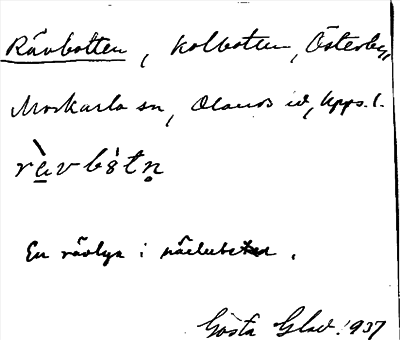 Rävbotten, Kolbotten, Österby,
Morkarla sn, Olands hd, Upps. l.
ràvbòtn̥
En rävlya i närheten.
Gösta Glad. 1937